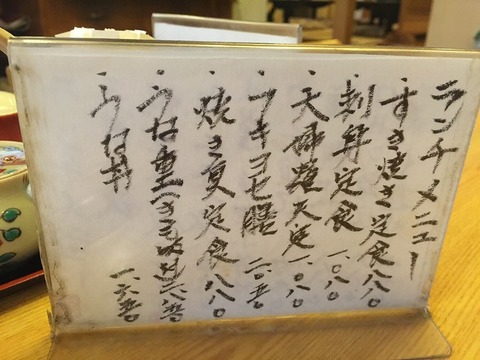 ランチメニュー
・すき焼き定食 八八〇
・刺身定食 一〇八〇
・天婦羅定食 一、〇八〇
・フキヨセ膳 二〇五〇
・焼き魚定食 八八〇
・うな重(きも吸付
・うな丼 一六五〇